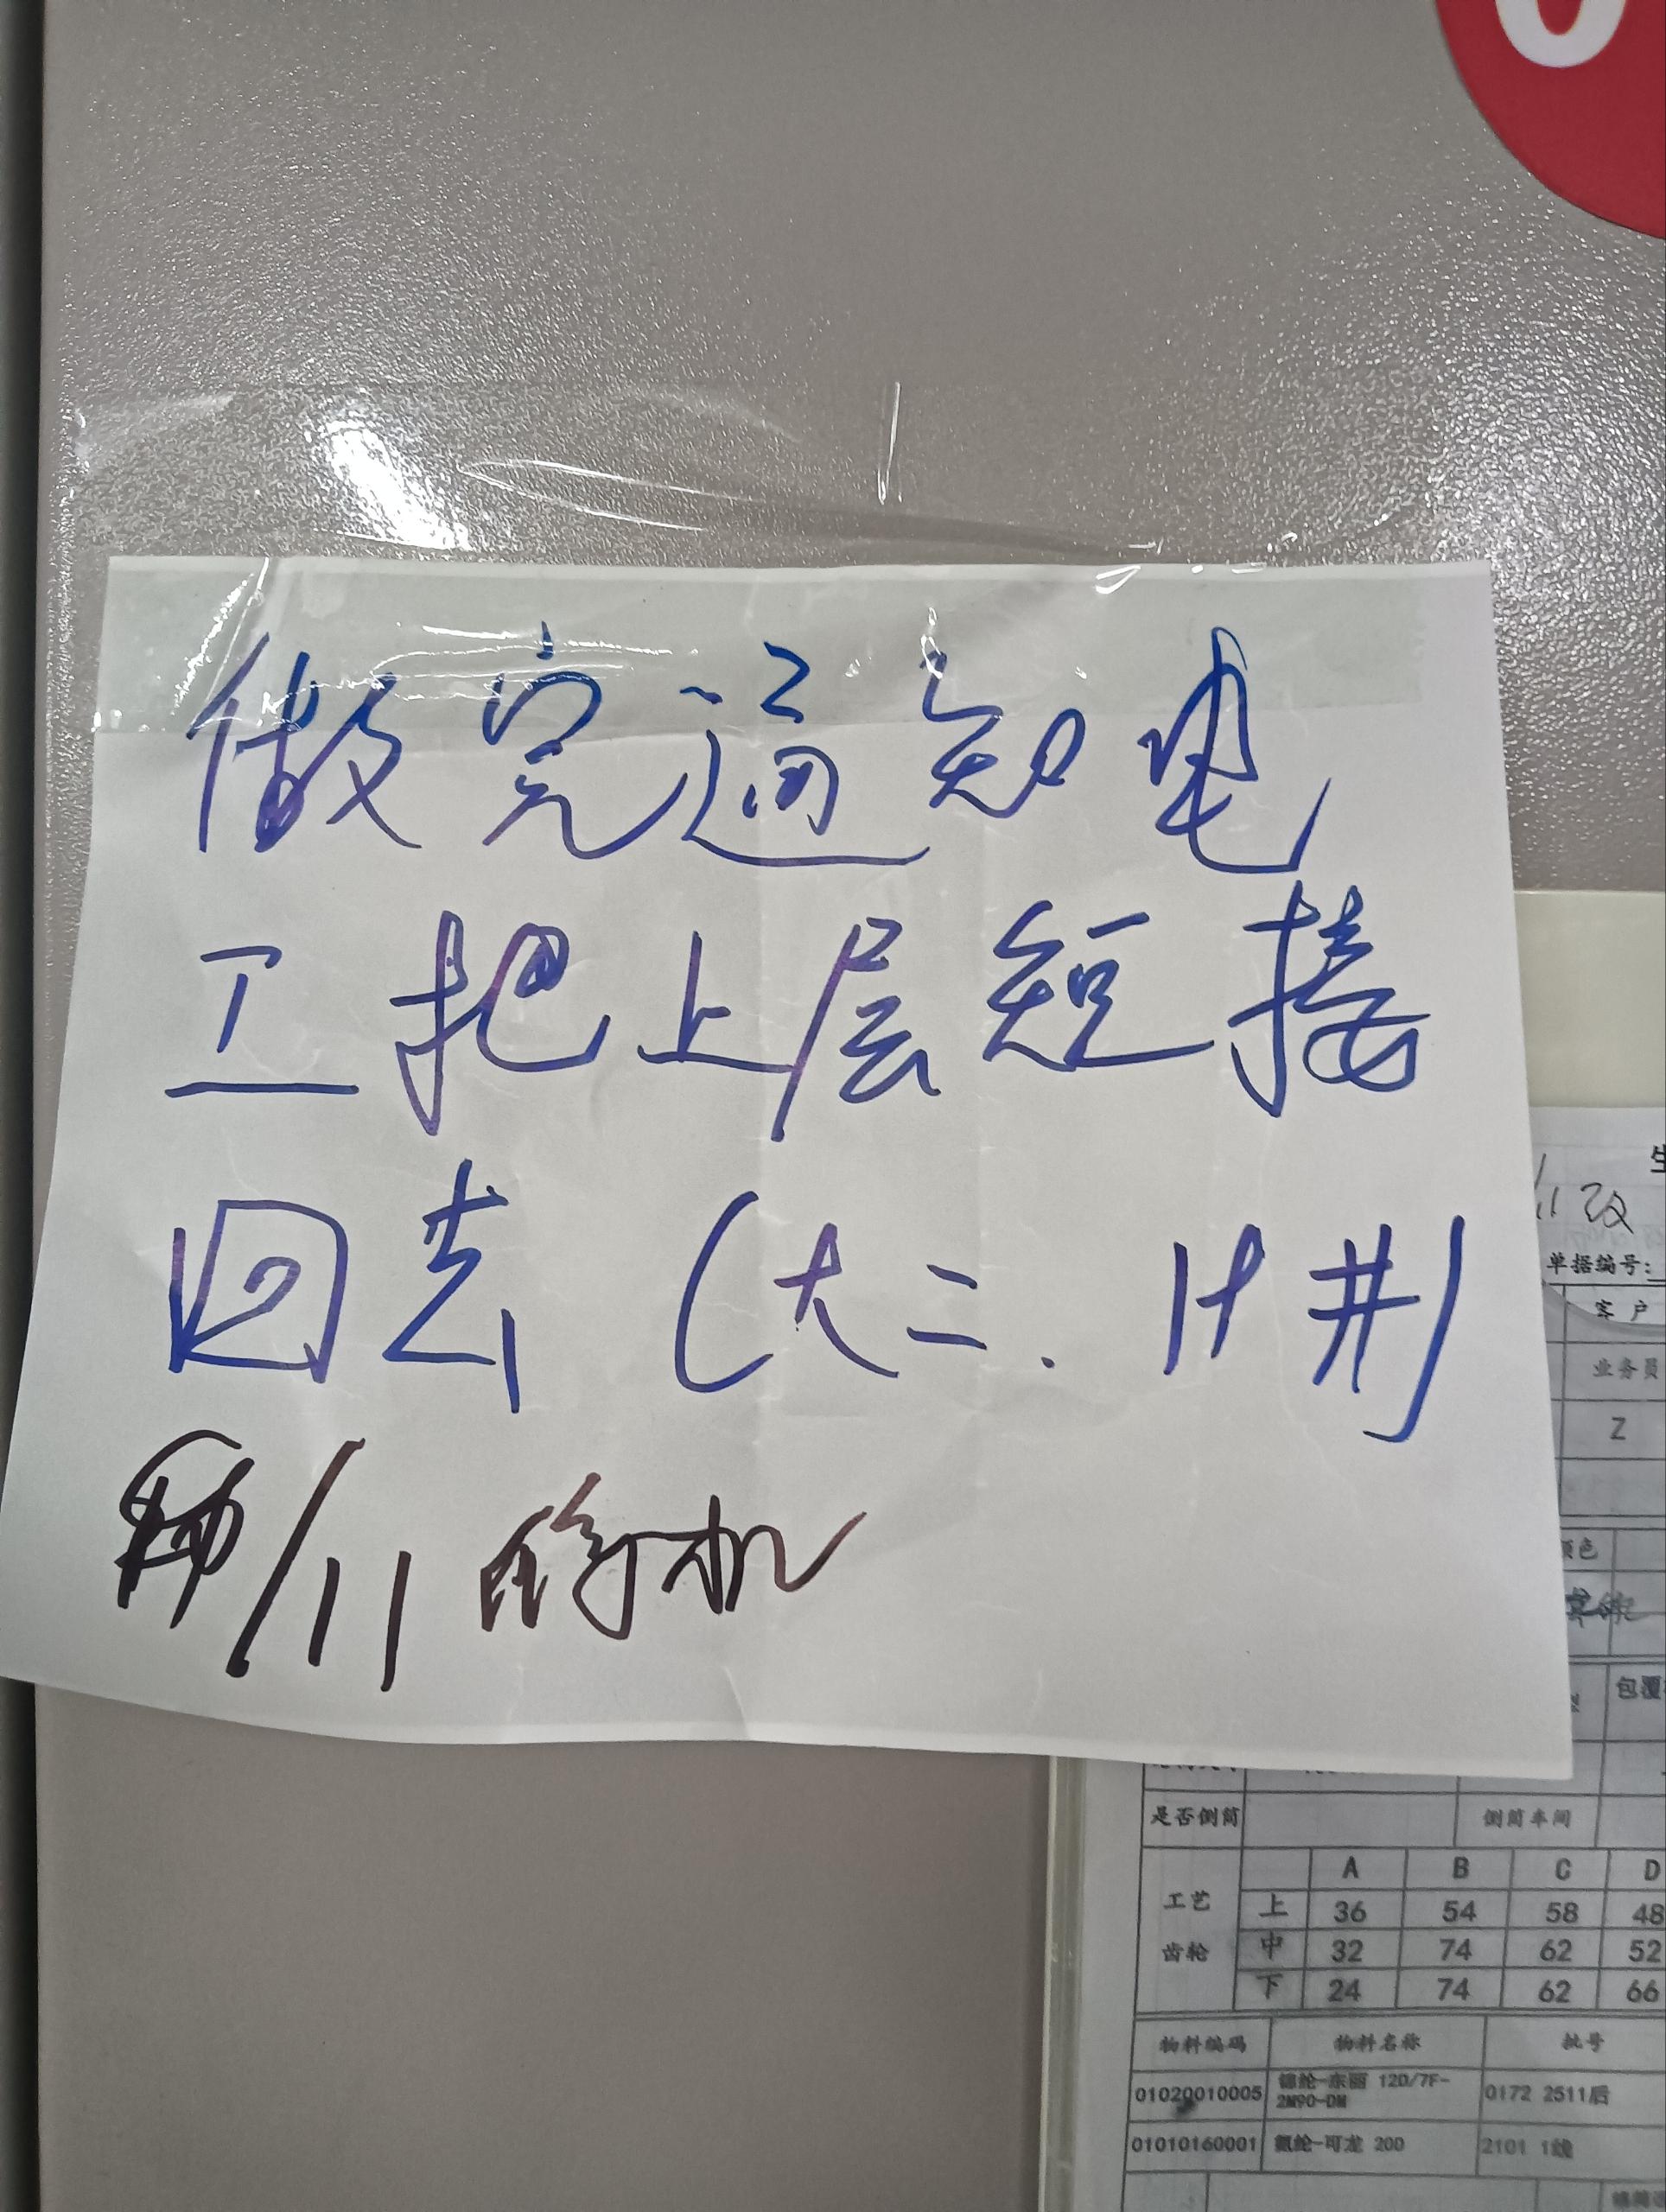 做完通知电
工把上层短接
回去（大二. 1# 井）
/11 的机
11 改
单据编号:
客户
业务员
Z
颜色
包覆
是否倒筒 倒筒车间
A B C D
工艺 上 36 54 58 48
齿轮 中 32 74 62 52
下 24 74 62 66
物料编码 物料名称 批号
01020010005 锦纶-东丽 12D/7F-2M90-DM 0172 2511后
01010160001 氨纶-可龙 20D 2101 1线